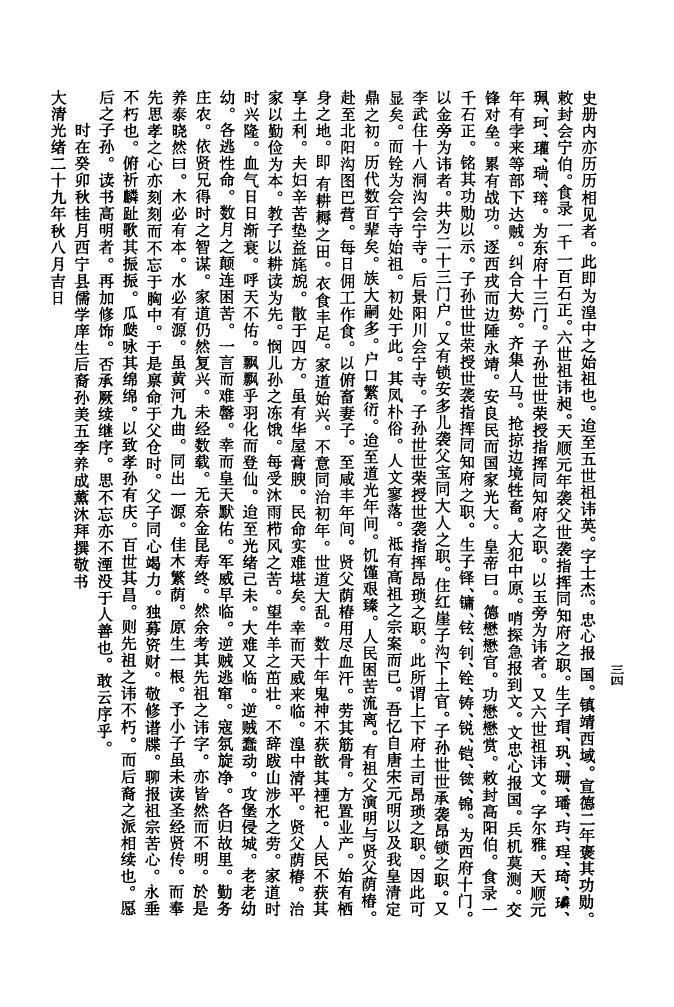 史册内亦历历相见者。此即为湟中之始祖也。迨至五世祖讳英。字士杰。忠心报国。镇靖西域。宣德二年褒其功勋。
敕封会宁伯。食录一千一百石正。六世祖讳昶。天顺元年袭父世袭指挥同知府之职。生子瑁、玑、珊、璠、玙、珵、琦、璘、
珮、珂、瓘、瑞、瑢。为东府十三门。子孙世世荣授指挥同知府之职。以玉旁为讳者。又六世祖讳文。字尔雅。天顺元
年有孛来等部下达贼。纠合大势。齐集人马。抢掠边境牲畜。大犯中原。哨探急报到文。文忠心报国。兵机莫测。交
锋对垒。累有战功。逐西戎而边陲永靖。安良民而国家光大。皇帝曰。德懋懋官。功懋懋赏。敕封高阳伯。食录一
千石正。铭其功勋以示。子孙世世荣授世袭指挥同知府之职。生子铎、镛、铉、钊、铨、铸、锐、铠、铍、锦。为西府十门。
以金旁为讳者。共为二十三门户。又有锁安多儿袭父宝同大人之职。住红崖子沟下土官。子孙世世承袭昂锁之职。又
李武住十八洞沟会宁寺。后景阳川会宁寺。子孙世世荣授世袭指挥昂琐之职。此所谓上下府土司昂琐之职。因此可
显矣。而铨为会宁寺始祖。初处于此。其风朴俗。人文寥落。祗有高祖之宗案而已。吾忆自唐宋元明以及我皇清定
鼎之初。历代数百辈矣。族大嗣多。户口繁衍。迨至道光年间。饥馑艰臻。人民困苦流离。有祖父演明与贤父荫椿。
赴至北阳沟图巴营。每日佣工作食。以俯畜妻子。至咸丰年间。贤父荫椿用尽血汗。劳其筋骨。方置业产。始有栖
身之地。即有耕耨之田。衣食丰足。家道始兴。不意同治初年。世道大乱。数十年鬼神不获歆其禋祀。人民不获其
享土利。夫妇辛苦垫益旄旎。散于四方。虽有华屋膏腴。民命实难堪矣。幸而天威来临。湟中清平。贤父荫椿。治
家以勤俭为本。教子以耕读为先。悯儿孙之冻饿。每受沐雨栉风之苦。望牛羊之茁壮。不辞跋山涉水之劳。家道时
时兴隆。血气日日渐衰。呼天不佑。飘飘乎羽化而登仙。迨至光绪己未。大难又临。逆贼蠢动。攻堡侵城。老老幼
幼。各逃性命。数月之颠连困苦。一言而难罄。幸而皇天默佑。军威早临。逆贼逃窜。寇氛旋净。各归故里。勤务
庄农。依贤兄得时之智谋。家道仍然复兴。未经数载。无奈金昆寿终。然余考其先祖之讳字。亦皆然而不明。於是
养泰晓然曰。木必有本。水必有源。虽黄河九曲。同出一源。佳木繁荫。原生一根。予小子虽未读圣经贤传。而奉
先思孝之心亦刻刻而不忘于胸中。于是禀命于父仓时。父子同心竭力。独募资财。敬修谱牒。聊报祖宗苦心。永垂
不朽也。俯祈麟趾歌其振振。瓜瓞咏其绵绵。以致孝孙有庆。百世其昌。则先祖之讳不朽。而后裔之派相续也。愿
后之子孙。读书高明者。再加修饰。否承厥续继序。思不忘亦不湮没于人善也。敢云序乎。
时在癸卯秋桂月西宁县儒学庠生后裔孙美五李养成薰沐拜撰敬书
大清光绪二十九年秋八月吉日
三四